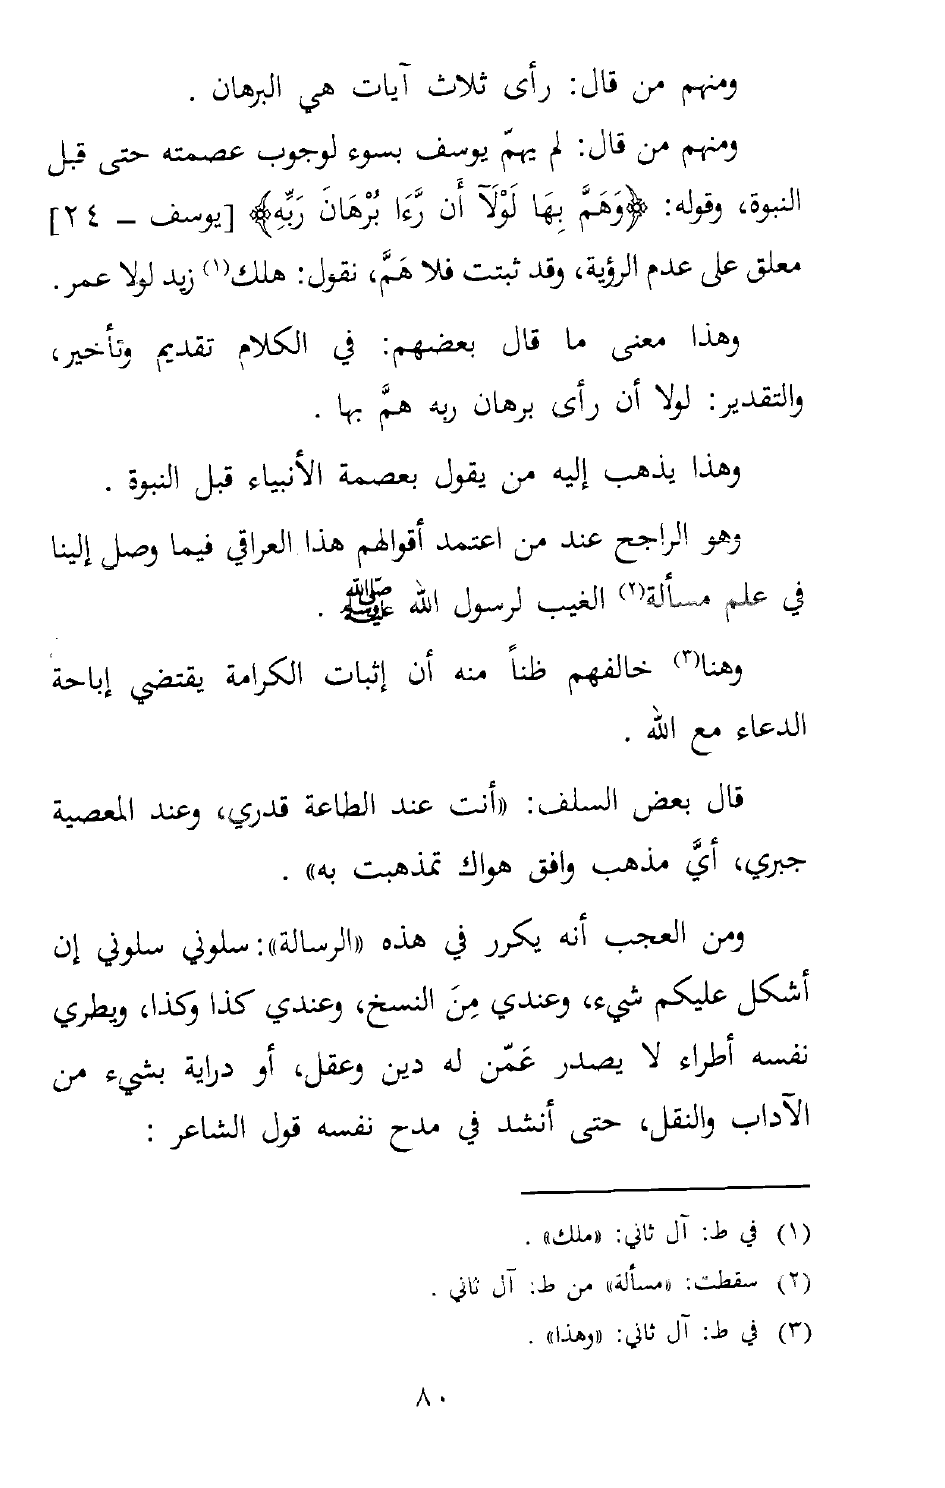 ومنهم من قال: رأى ثلاث آيات هي البرهان .
ومنهم من قال: لم يهمّ يوسف بسوء لوجوب عصمته حتى قبل
النبوة، وقوله: ﴿وَهَمَّ بِهَا لَوْلَآ أَن رَّءَا بُرْهَانَ رَبِّهِ﴾ [يوسف – ٢٤]
معلق على عدم الرؤية، وقد ثبتت فلا هَمَّ، نقول: هلك(١) زيد لولا عمر.
وهذا معنى ما قال بعضهم: في الكلام تقديم وتأخير،
والتقدير: لولا أن رأى برهان ربه همَّ بها .
وهذا يذهب إليه من يقول بعصمة الأنبياء قبل النبوة .
وهو الراجح عند من اعتمد أقوالهم هذا العراقي فيما وصل إلينا
في علم مسألة(٢) الغيب لرسول الله ﷺ .
وهنا(٣) خالفهم ظناً منه أن إثبات الكرامة يقتضي إباحة
الدعاء مع الله .
قال بعض السلف: «أنت عند الطاعة قدري، وعند المعصية
جبري، أيَّ مذهب وافق هواك تمذهبت به» .
ومن العجب أنه يكرر في هذه «الرسالة»: سلوني سلوني إن
أشكل عليكم شيء، وعندي مِنَ النسخ، وعندي كذا وكذا، ويطري
نفسه أطراء لا يصدر عَمّن له دين وعقل، أو دراية بشيء من
الآداب والنقل، حتى أنشد في مدح نفسه قول الشاعر :
(١) في ط: آل ثاني: «ملك» .
(٢) سقطت: «مسألة» من ط: آل ثاني .
(٣) في ط: آل ثاني: «وهذا» .
٨٠